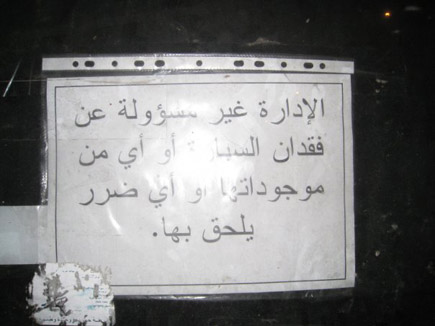 الإدارة غير مسؤولة عن
فقدان السيارة أو أي من
موجوداتها او أي ضرر
يلحق بها.